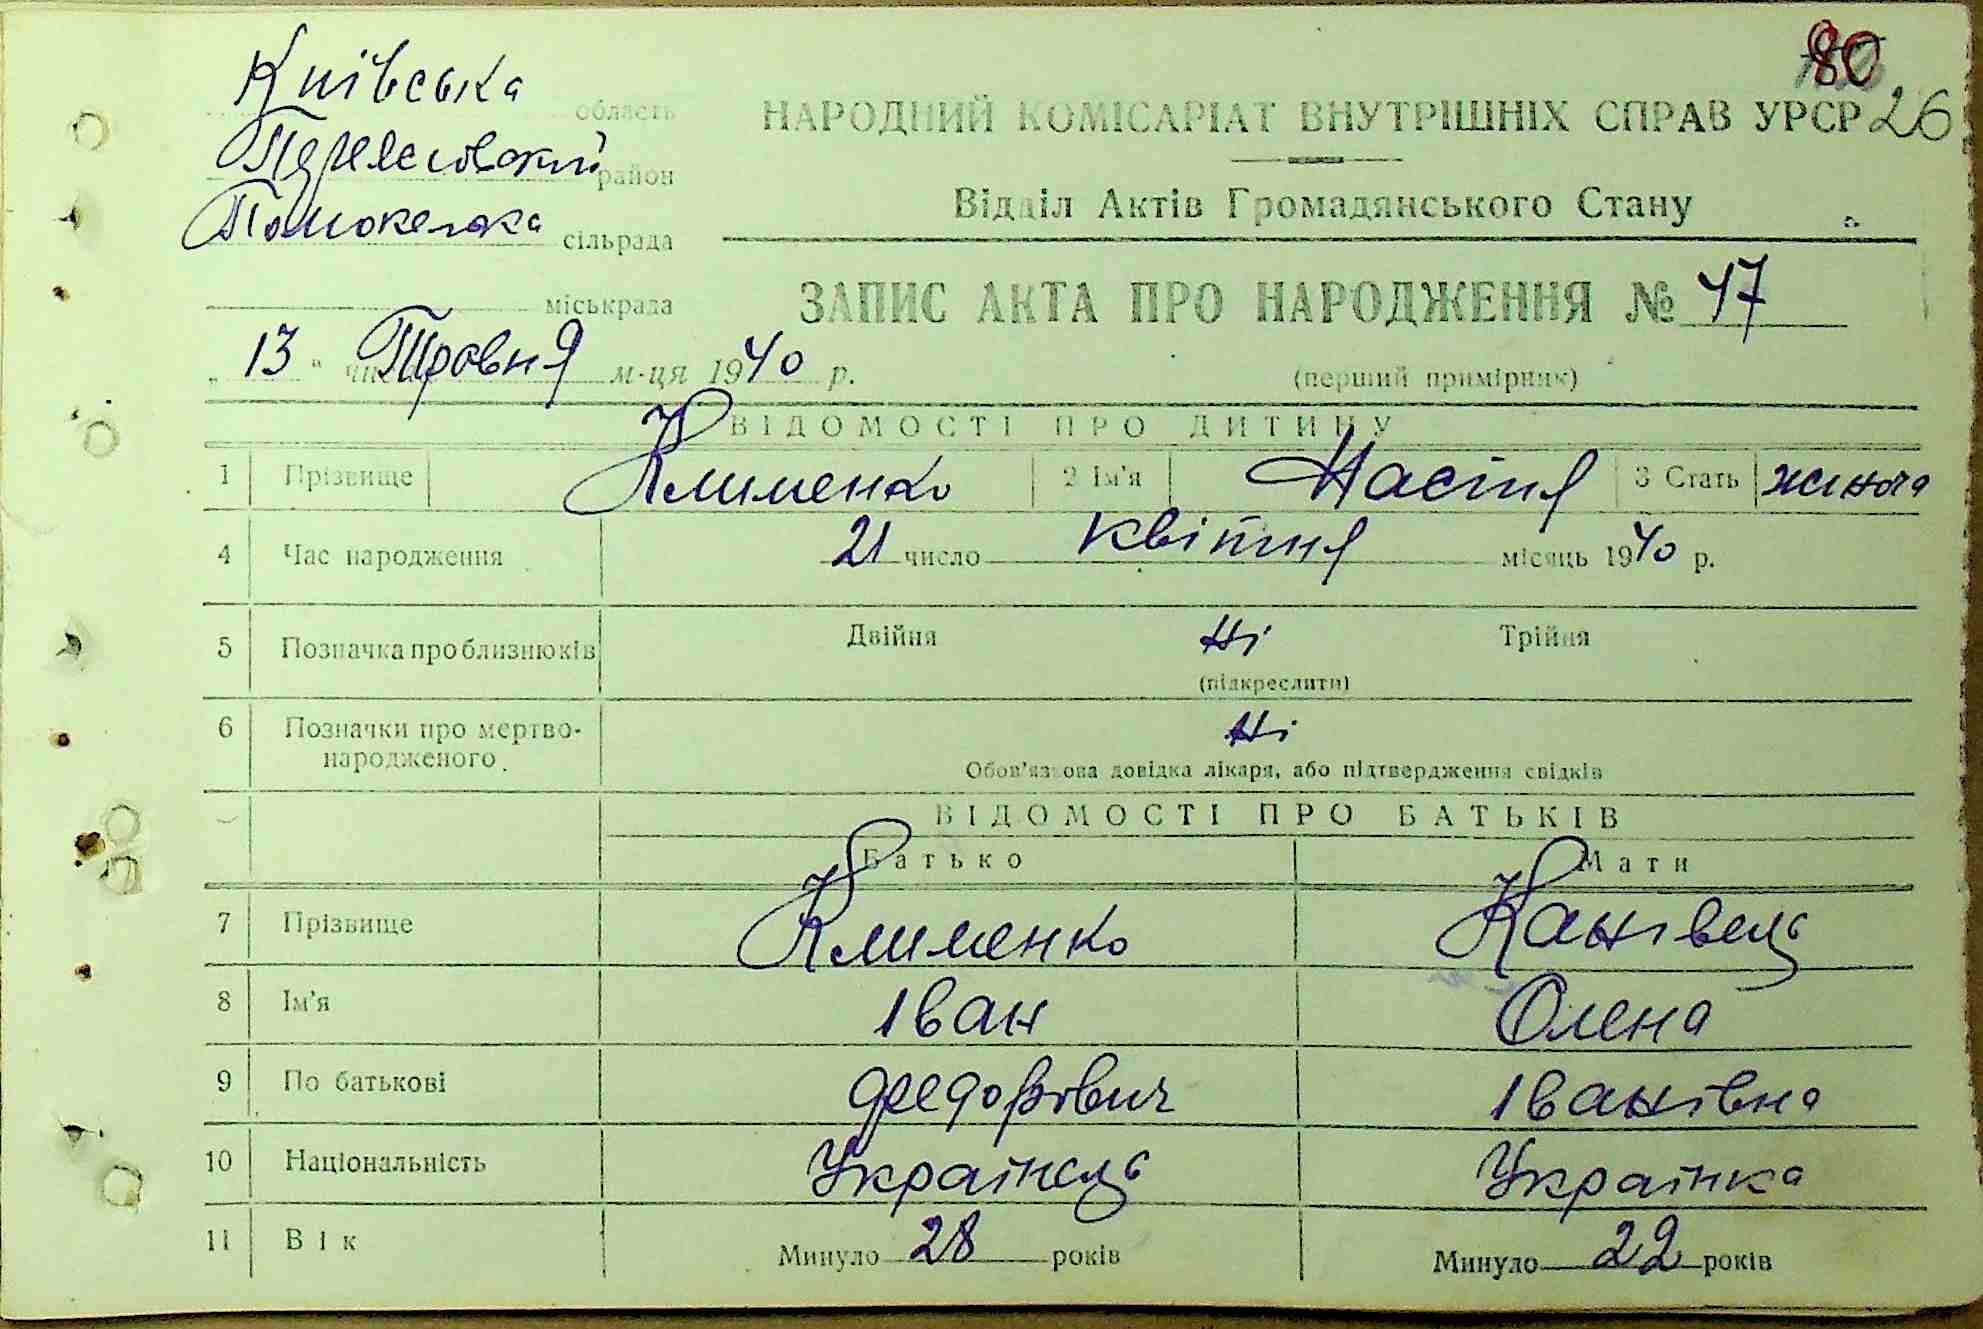 80
26
Київська область
Переяславський район
сільрада
міськрада
НАРОДНИЙ КОМІСАРІАТ ВНУТРІШНІХ СПРАВ УРСР
Відділ Актів Громадянського Стану
ЗАПИС АКТА ПРО НАРОДЖЕННЯ № 47
„ 13 “ числа Травня м-ця 1940 р.
(перший примірник)
ВІДОМОСТІ ПРО ДИТИНУ
1 Прізвище Клименко 2 Ім'я Настя 3 Стать жіноча
4 Час народження 21 число квітня місяць 1940 р.
5 Позначка про близнюків Двійня Ні Трійня
(підкреслити)
6 Позначки про мертво-
народженого. Ні
Обов'язкова довідка лікаря, або підтвердження свідків
ВІДОМОСТІ ПРО БАТЬКІВ
Батько Мати
7 Прізвище Клименко Канівець
8 Ім'я Іван Олена
9 По батькові Федорович Іванівна
10 Національність Українець Українка
11 Вік Минуло 28 років Минуло 22 років